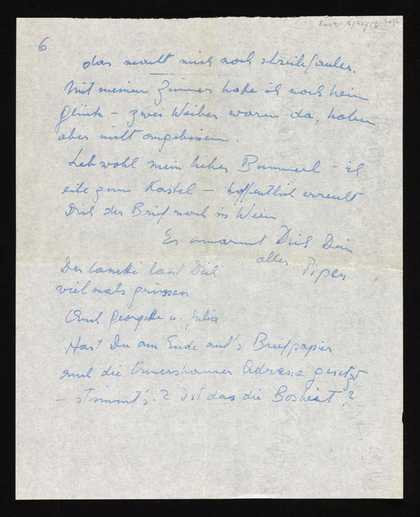 6
das macht mich noch streitsauber.
Mit meinem Zimmer habe ich noch kein
Glück – zwei Weiber waren da, haben
aber nicht angebissen.
Leb wohl mein lieber Bummerl – ich
eile zum Kastel – hoffentlich erreicht
Dich der Brief noch in Wien
Es umarmt Dich Dein
alter Piper
Der lässt Dich
vielmals grüssen
Auch Georgette u. Julia
Hast Du am Ende auf's Briefpapier
auch die Adresse gesetzt
– stimmt's? Ist das die Bosheit?